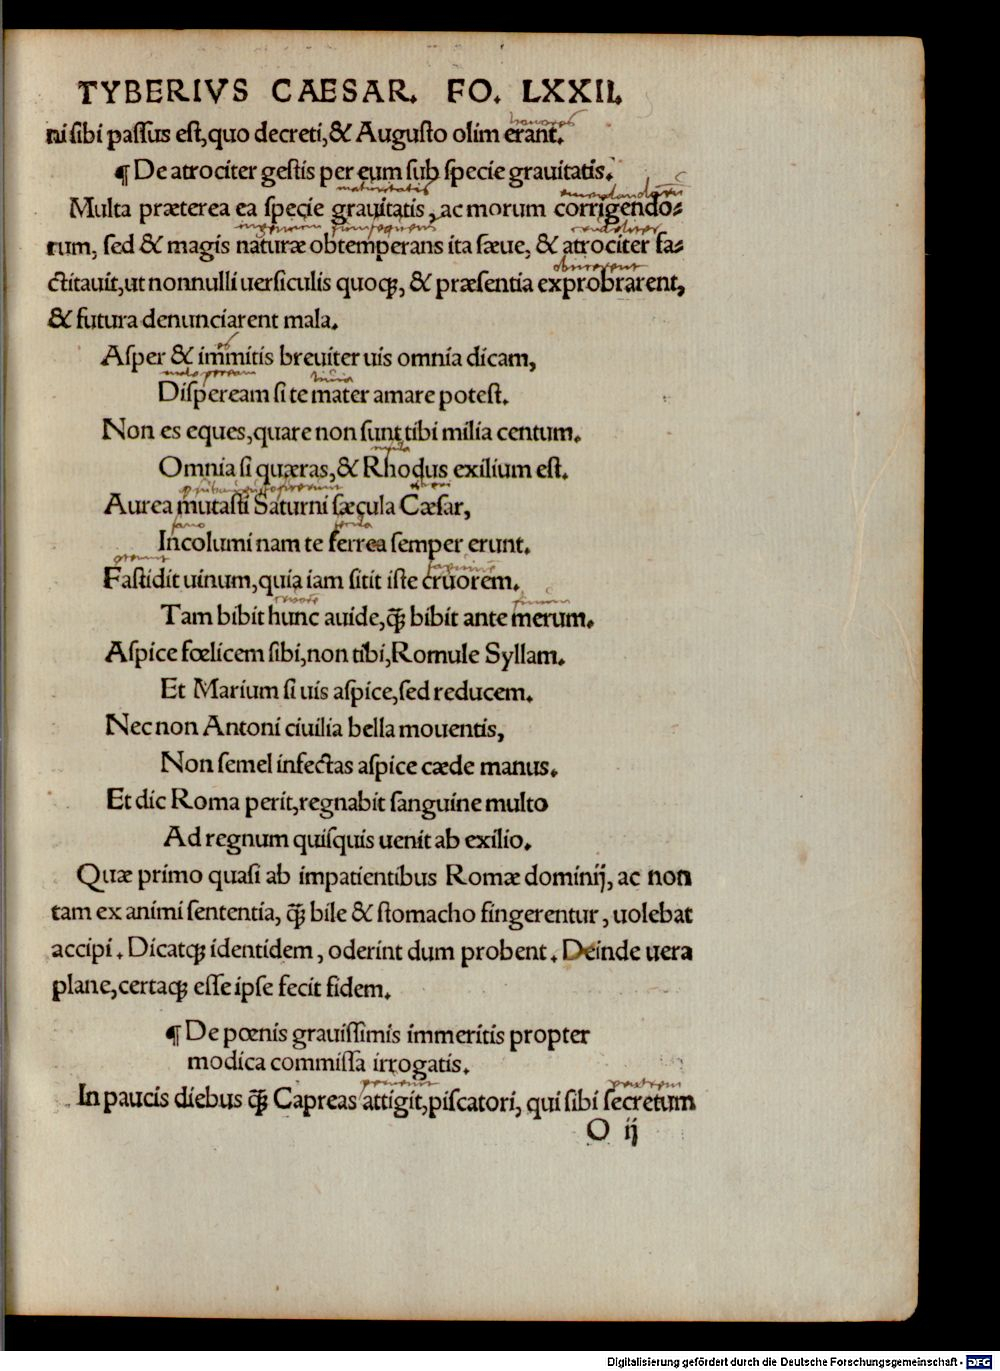 TYBERIVS CAESAR. FO. LXXII.
honores
ni sibi passus est, quo decreti, & Augusto olim erant.
¶ De atrociter gestis per eum sub specie grauitatis.
maturitatis
Multa præterea ea specie grauitatis, ac morum corrigendo-
ingenium
rum, sed & magis naturæ obtemperans ita sæue, & atrociter fa-
ctitauit, ut nonnulli uersiculis quoqꝫ, & præsentia exprobrarent,
& futura denunciarent mala.
Asper & immitis breuiter uis omnia dicam,
male peream
Dispeream si te mater amare potest.
Non es eques, quare non sunt tibi milia centum.
insula
Omnia si quæras, & Rhodus exilium est.
Aurea mutasti Saturni sæcula Cæsar,
Incolumi nam te ferrea semper erunt.
Fastidit uinum, quia iam sitit iste cruorem.
Tam bibit hunc auide, q̃ꝫ bibit ante merum.
Aspice fœlicem sibi, non tibi, Romule Syllam.
Et Marium si uis aspice, sed reducem.
Nec non Antoni ciuilia bella mouentis,
Non semel infectas aspice cæde manus.
Et dic Roma perit, regnabit sanguine multo
Ad regnum quisquis uenit ab exilio.
Quæ primo quasi ab impatientibus Romæ dominij, ac non
tam ex animi sententia, q̃ꝫ bile & stomacho fingerentur, uolebat
accipi. Dicatqꝫ identidem, oderint dum probent. Deinde uera
plane, certaqꝫ esse ipse fecit fidem.
¶ De pœnis grauissimis immeritis propter
modica commissa irrogatis.
peruenit
In paucis diebus q̃ꝫ Capreas attigit, piscatori, qui sibi secretum
O ij
Digitalisierung gefördert durch die Deutsche Forschungsgemeinschaft - DFG